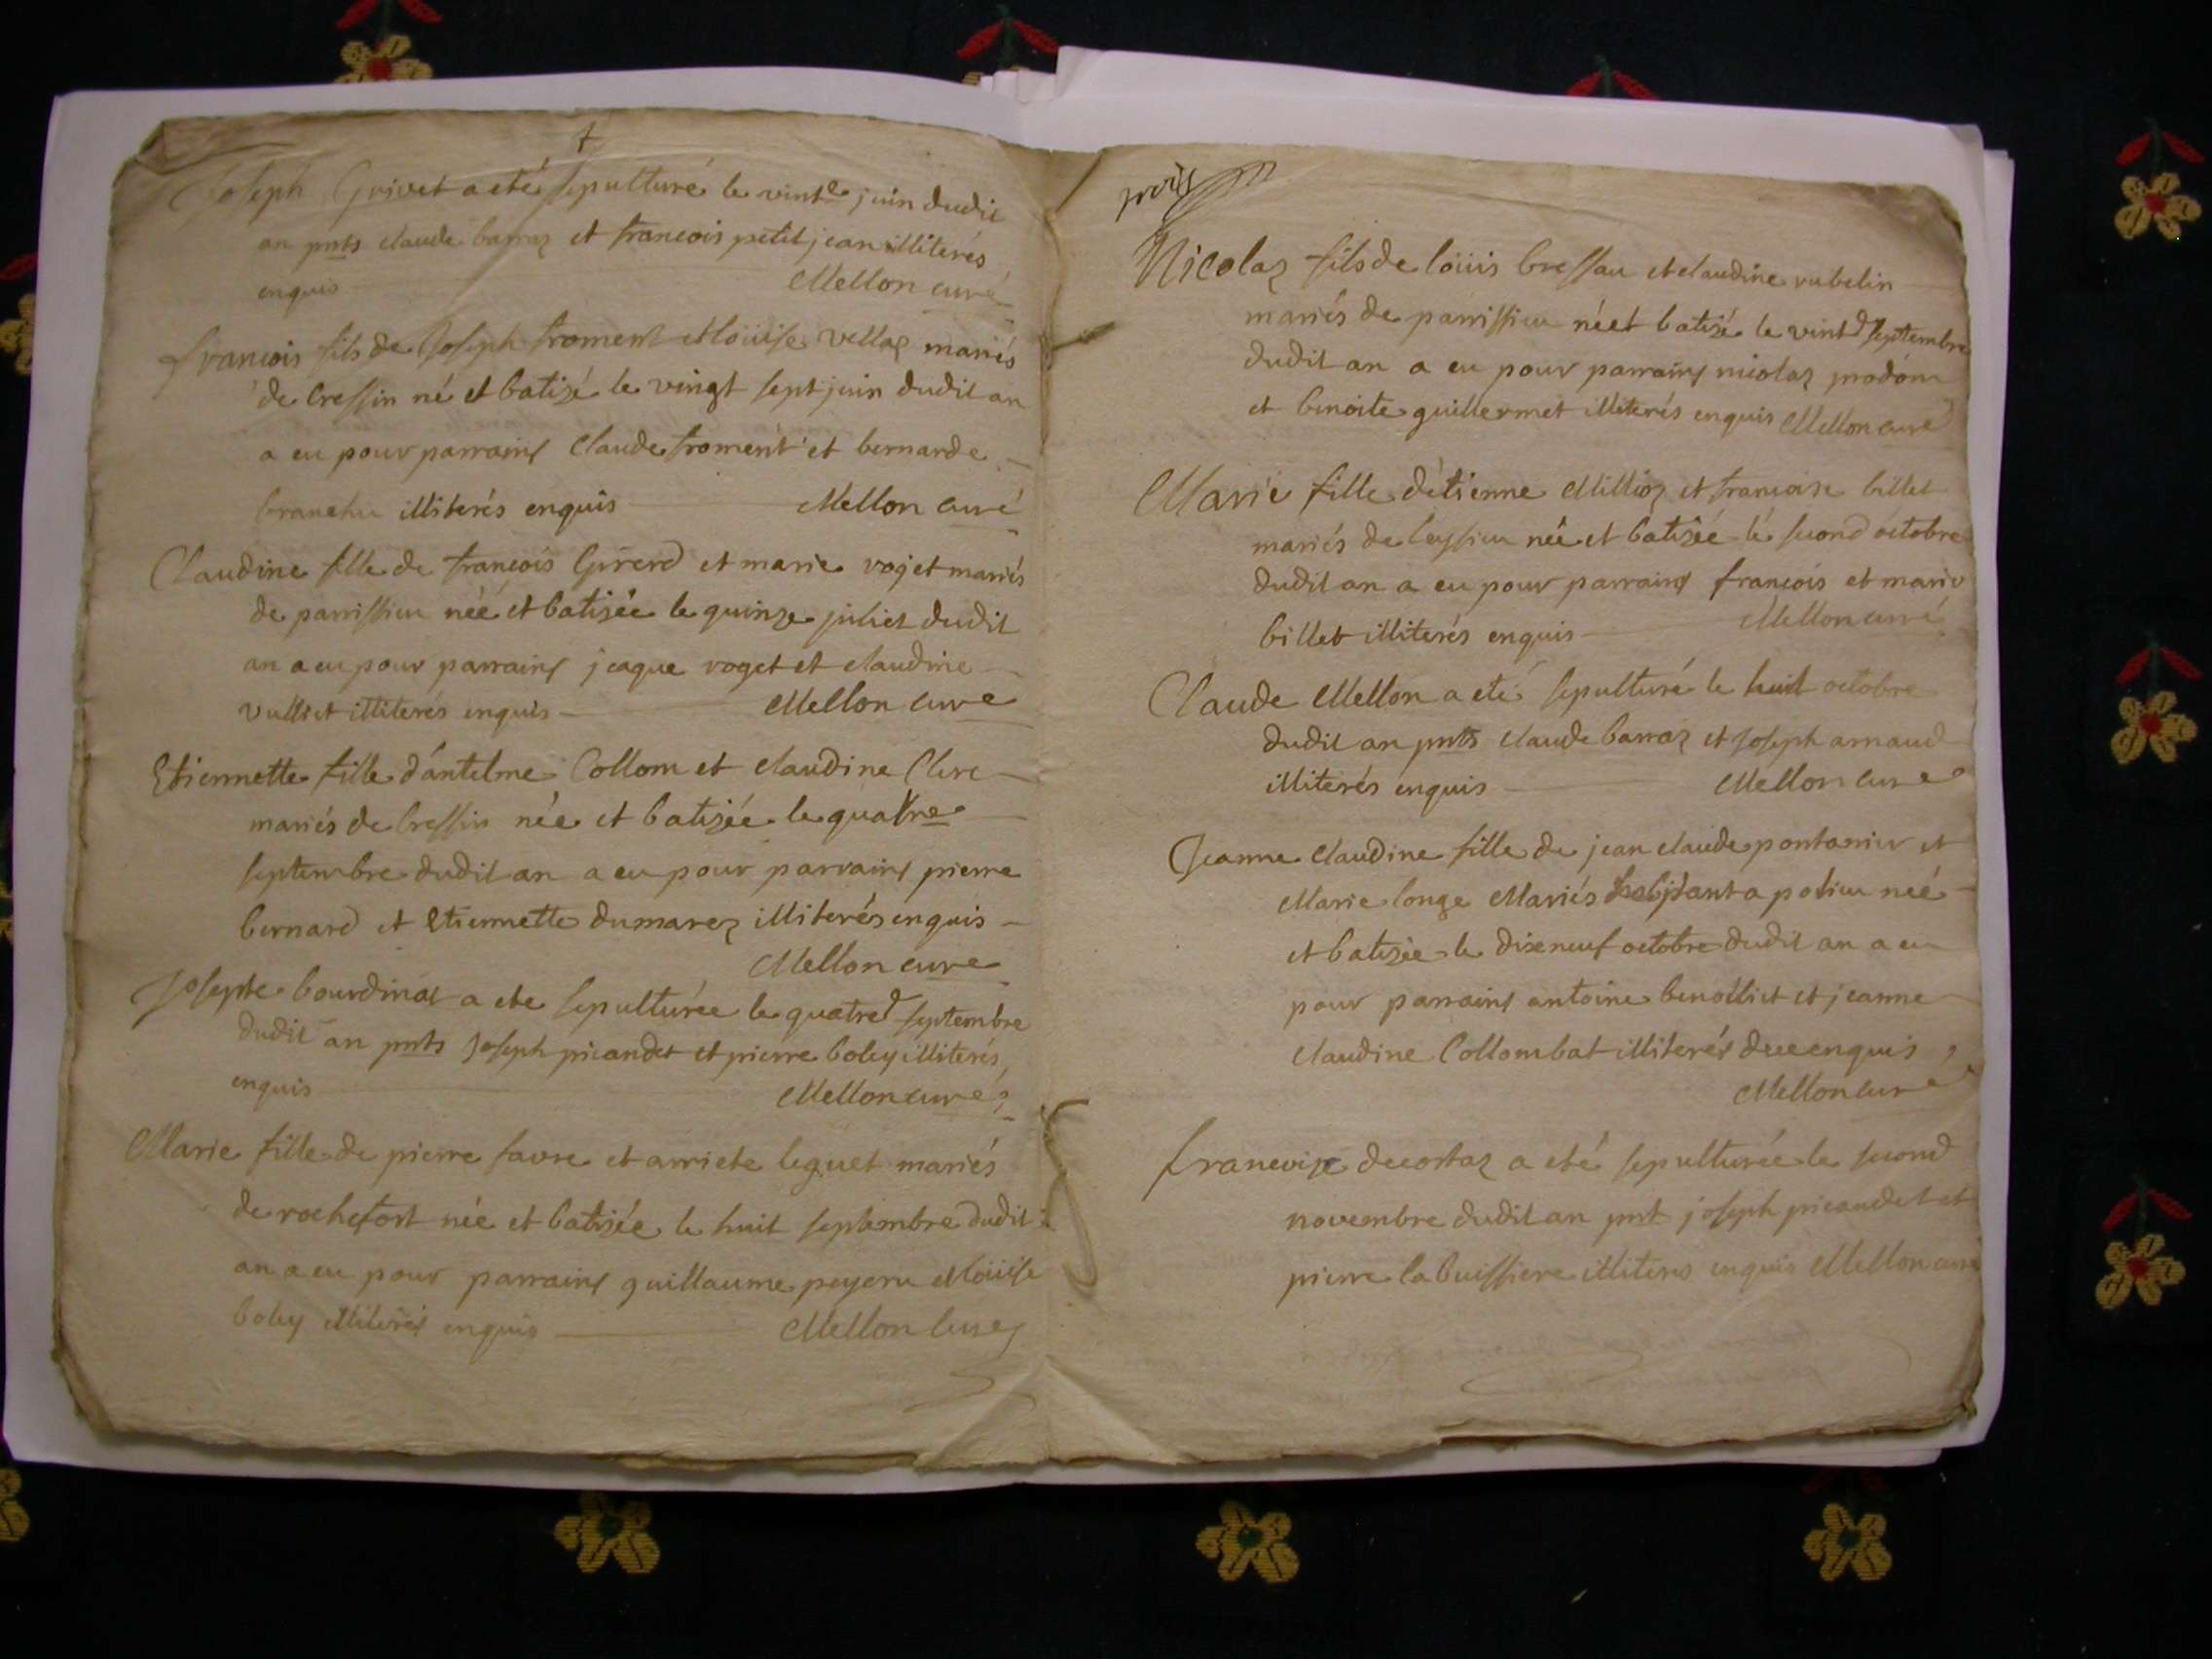 Joseph Grivet a eté sepulturé le vint e juin dudit
an pnts claude barraz et francois petit jean illiterés
enquis Mellon curé
francois fils de Joseph froment et loüise vellaz mariés
de Cressin né et batizé le vingt sept juin dudit an
a eu pour parrains Claude froment et bernarde
branchu illiterés enquis Mellon curé
Claudine fille de francois Girerd et marie voget mariés
de parrissieu née et batizée le quinze juliet dudit
an a eu pour parrains jcaque voget et claudine
vulliet illiterés enquis Mellon curé
Etiennette fille d'antelme Collom et claudine Clerc
mariés de Cressin née et batizée le quatre
septembre dudit an a eu pour parrains pierre
bernard et Etiennette dumarez illiterés enquis
Mellon curé
Josepte bourdinat a ete sepulturée le quatre d septembre
dudit an pnts Joseph picandet et pierre boley illiterés
enquis Mellon curé
Marie fille de pierre favre et arriete leguet mariés
de rochefort née et batizée le huit septembre dudit
an a eu pour parrains guillaume peyern et loüise
boley illiterés enquis Mellon Curé
Nicolaz fils de loüis bressau et claudine rubelin
mariés de parrissieu né et batizé le vint d septembre
dudit an a eu pour parrains nicolaz prodom
et benoite guillermet illiterés enquis Mellon curé
Marie fille d'étienne Millioz et francoise billet
mariés de leyssieu née et batizée le second octobre
dudit an a eu pour parrains francois et marie
billet illiterés enquis Mellon curé
Claude Mellon a eté sepulturé le huit octobre
dudit an pnts claude barraz et Joseph arnaud
illiterés enquis Mellon curé
Jeanne Claudine fille de jean claude pontanier et
Marie longe Mariés habitant a polieu neé
et batizée le dixneuf octobre dudit an a eu
pour parrains antoine benoilliet et jeanne
claudine Collombat illiterés de ce enquis
Mellon curé
francoise decortaz a eté sepulturée le second
novembre dudit an pnt joseph picaudet et
pierre labuissiere illiterés enquis Mellon curé